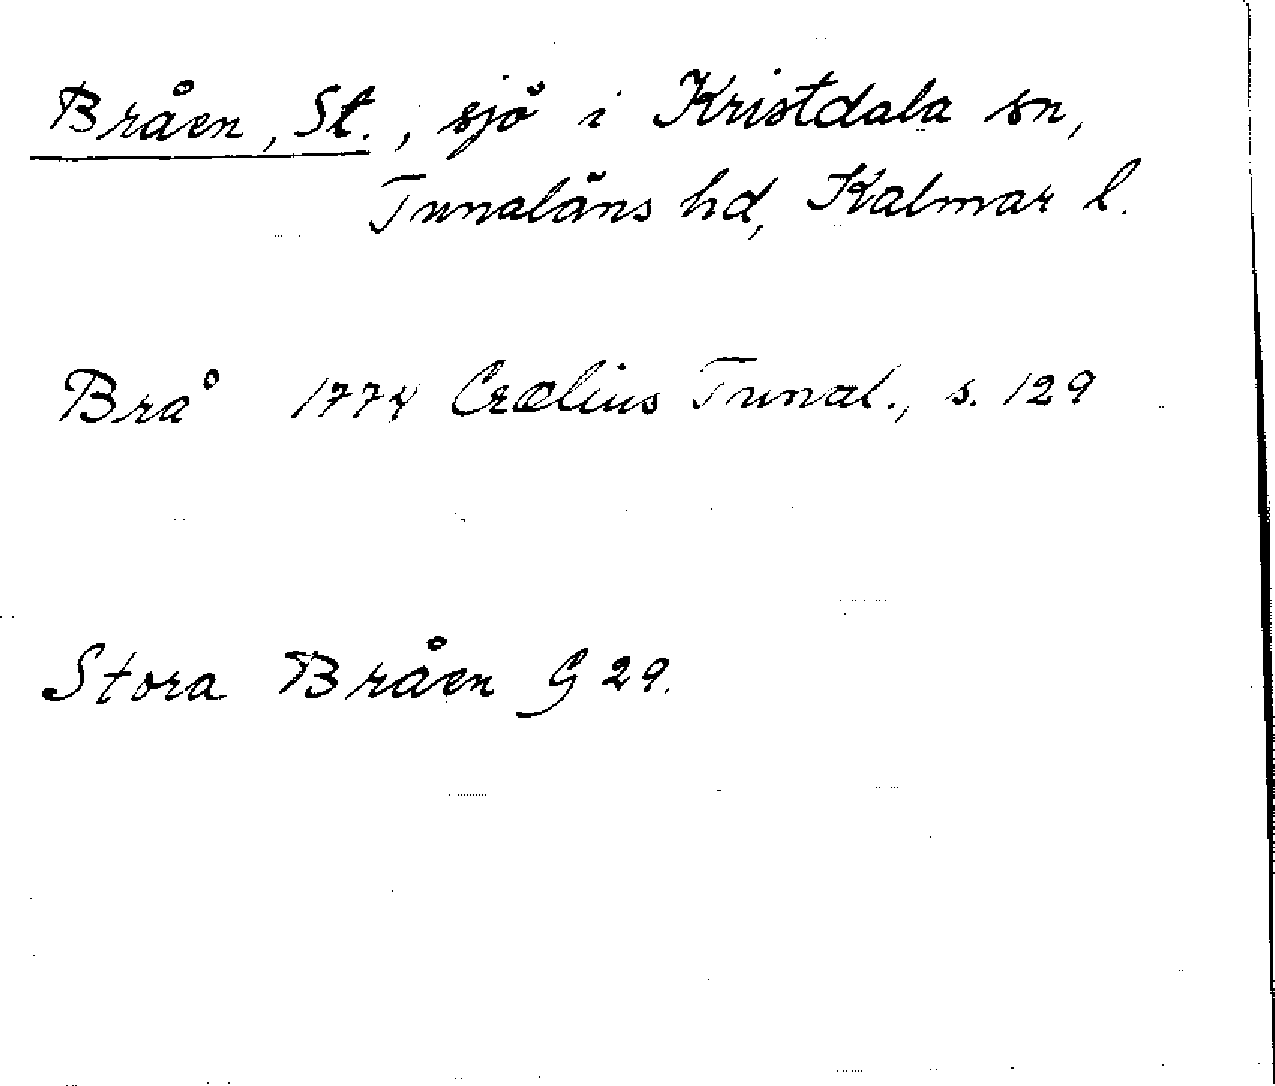 Bråen, St., sjö i Kristdala sn,
Tunaläns hd, Kalmar l.
Brå 1774 Crælius Tunal., s. 129
Stora Bråen G 29.